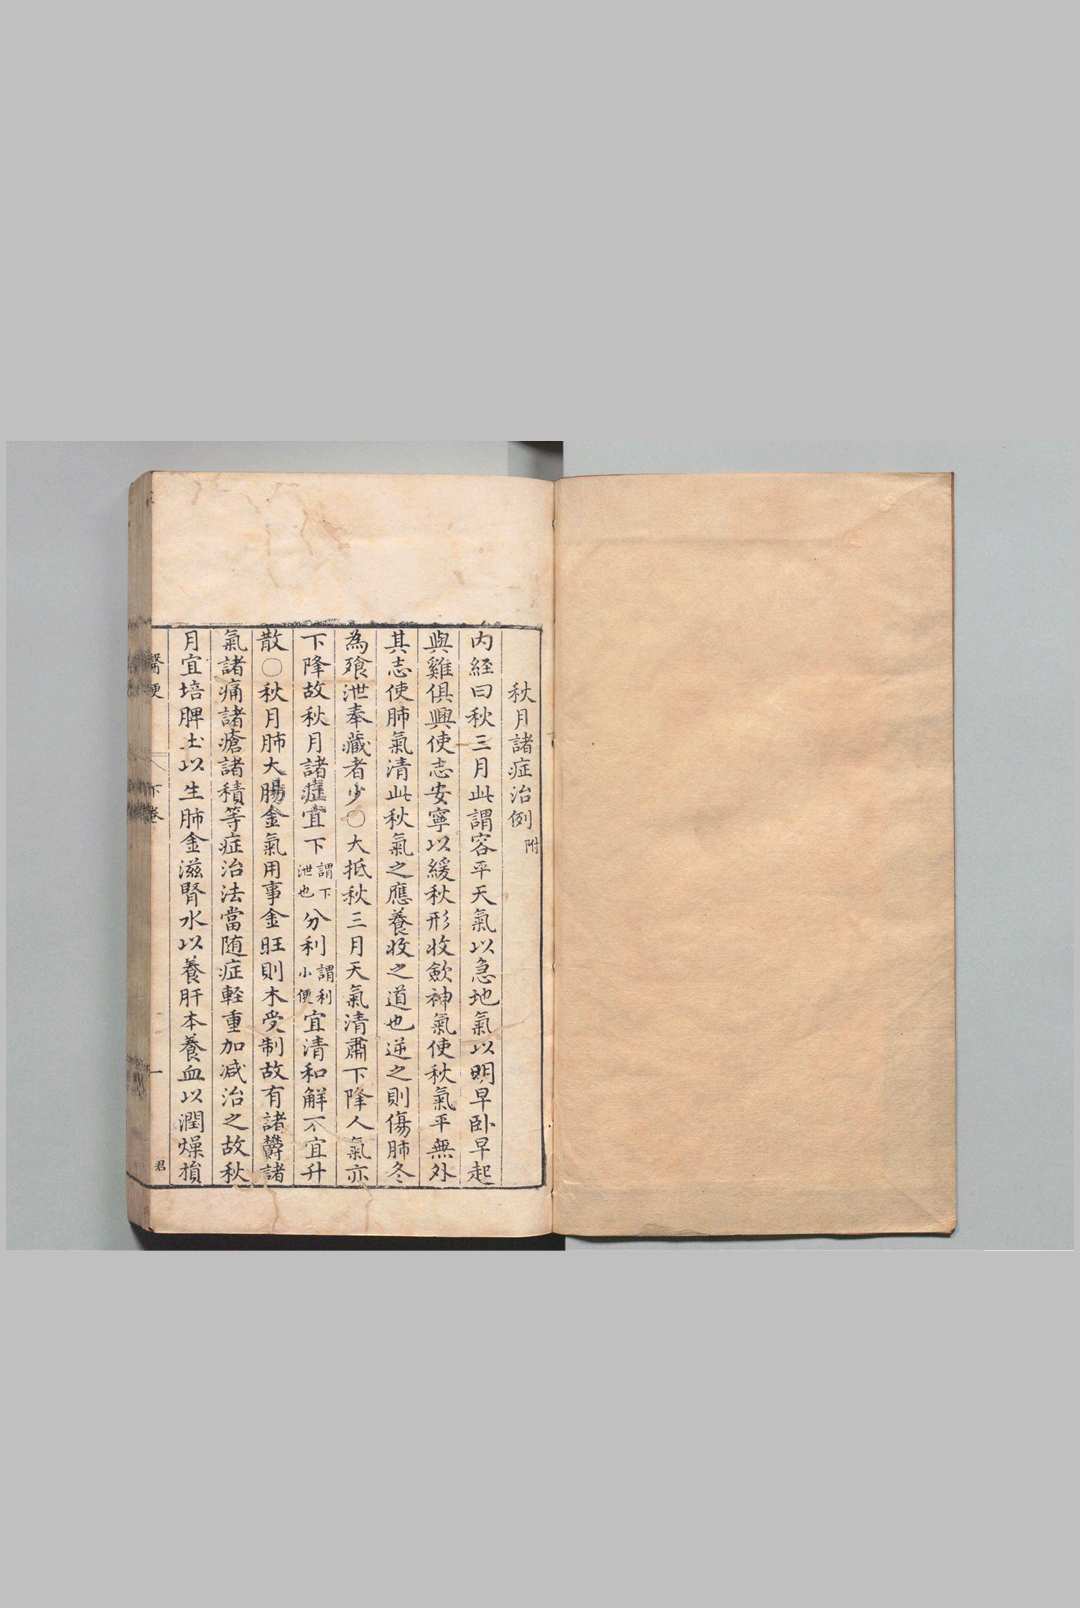 秋月諸症治例附
內経曰秋三月此謂容平天氣以急地氣以明早卧早起
與雞俱興使志安寧以緩秋形收歛神氣使秋氣平無外
其志使肺氣清此秋氣之應養收之道也逆之則傷肺冬
為飱泄奉藏者少〇大抵秋三月天氣清肅下降人氣亦
下降故秋月諸症宜下謂下泄也分利謂利小便宜清和解不宜升
散〇秋月肺大腸金氣用事金旺則木受制故有諸欝諸
氣諸痛諸瘡諸積等症治法當随症輕重加减治之故秋
月宜培脾土以生肺金滋腎水以養肝本養血以潤燥損
醫便 下卷 一 君